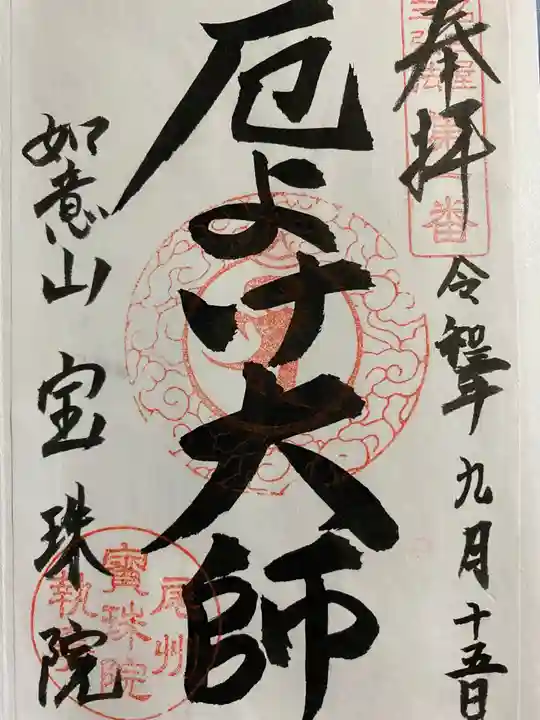 奉拝
令和三年九月十五日
厄よけ大師
如意山 宝珠院
尾州
寳珠院